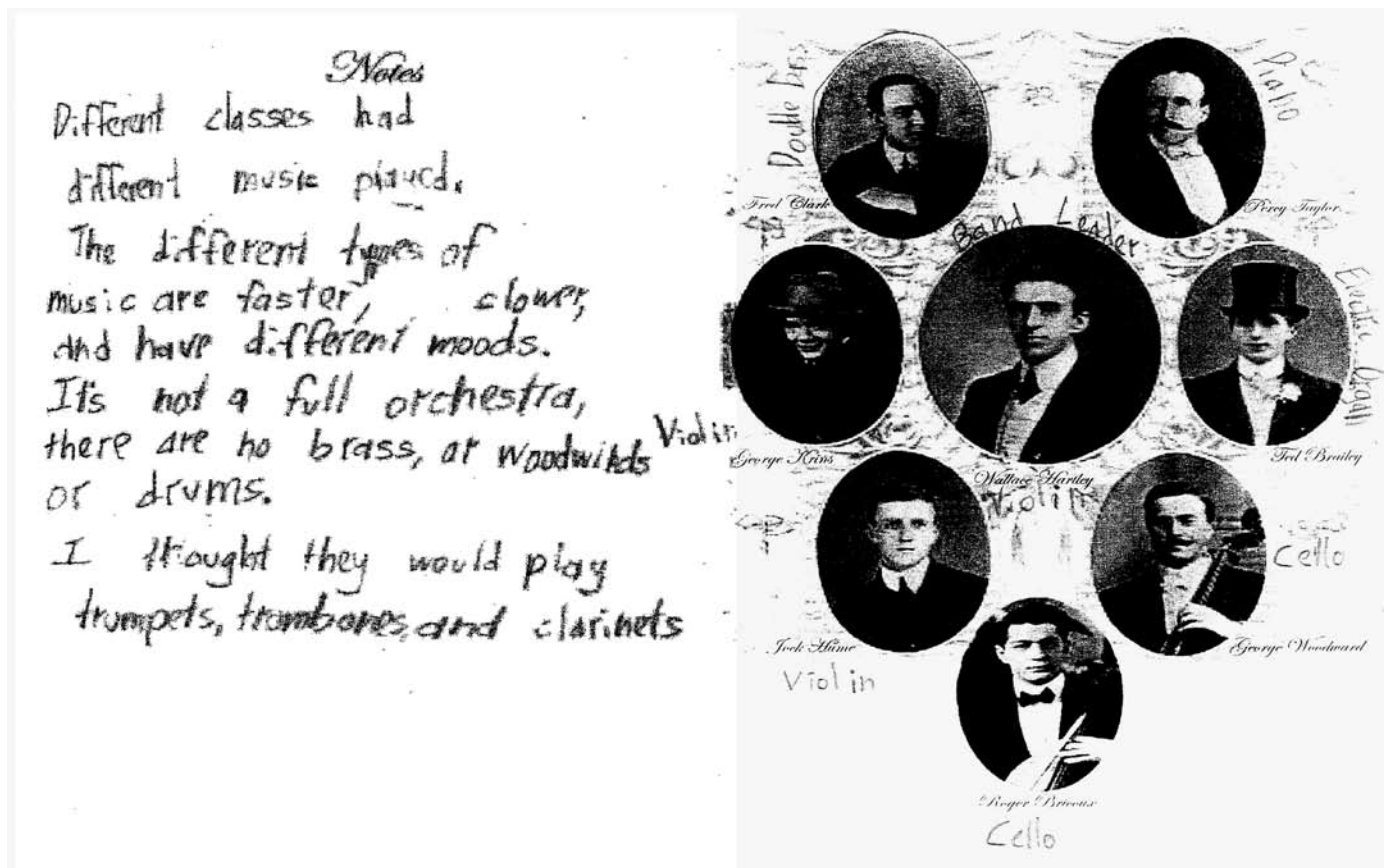 Notes
Different classes had
different music played.
The different types of
music are faster, slower,
and have different moods.
It's not a full orchestra,
there are no brass, or woodwinds
or drums.
I thought they would play
trumpets, trombones, and clarinets
Double Bass
Piano
Fred Clark
Percy Taylor.
Band Leader
Electric Organ
Violin
George Krins
Wallace Hartley
Ted Brailey
Violin
Cello
Jock Hume
George Woodward
Violin
Roger Bricoux
Cello